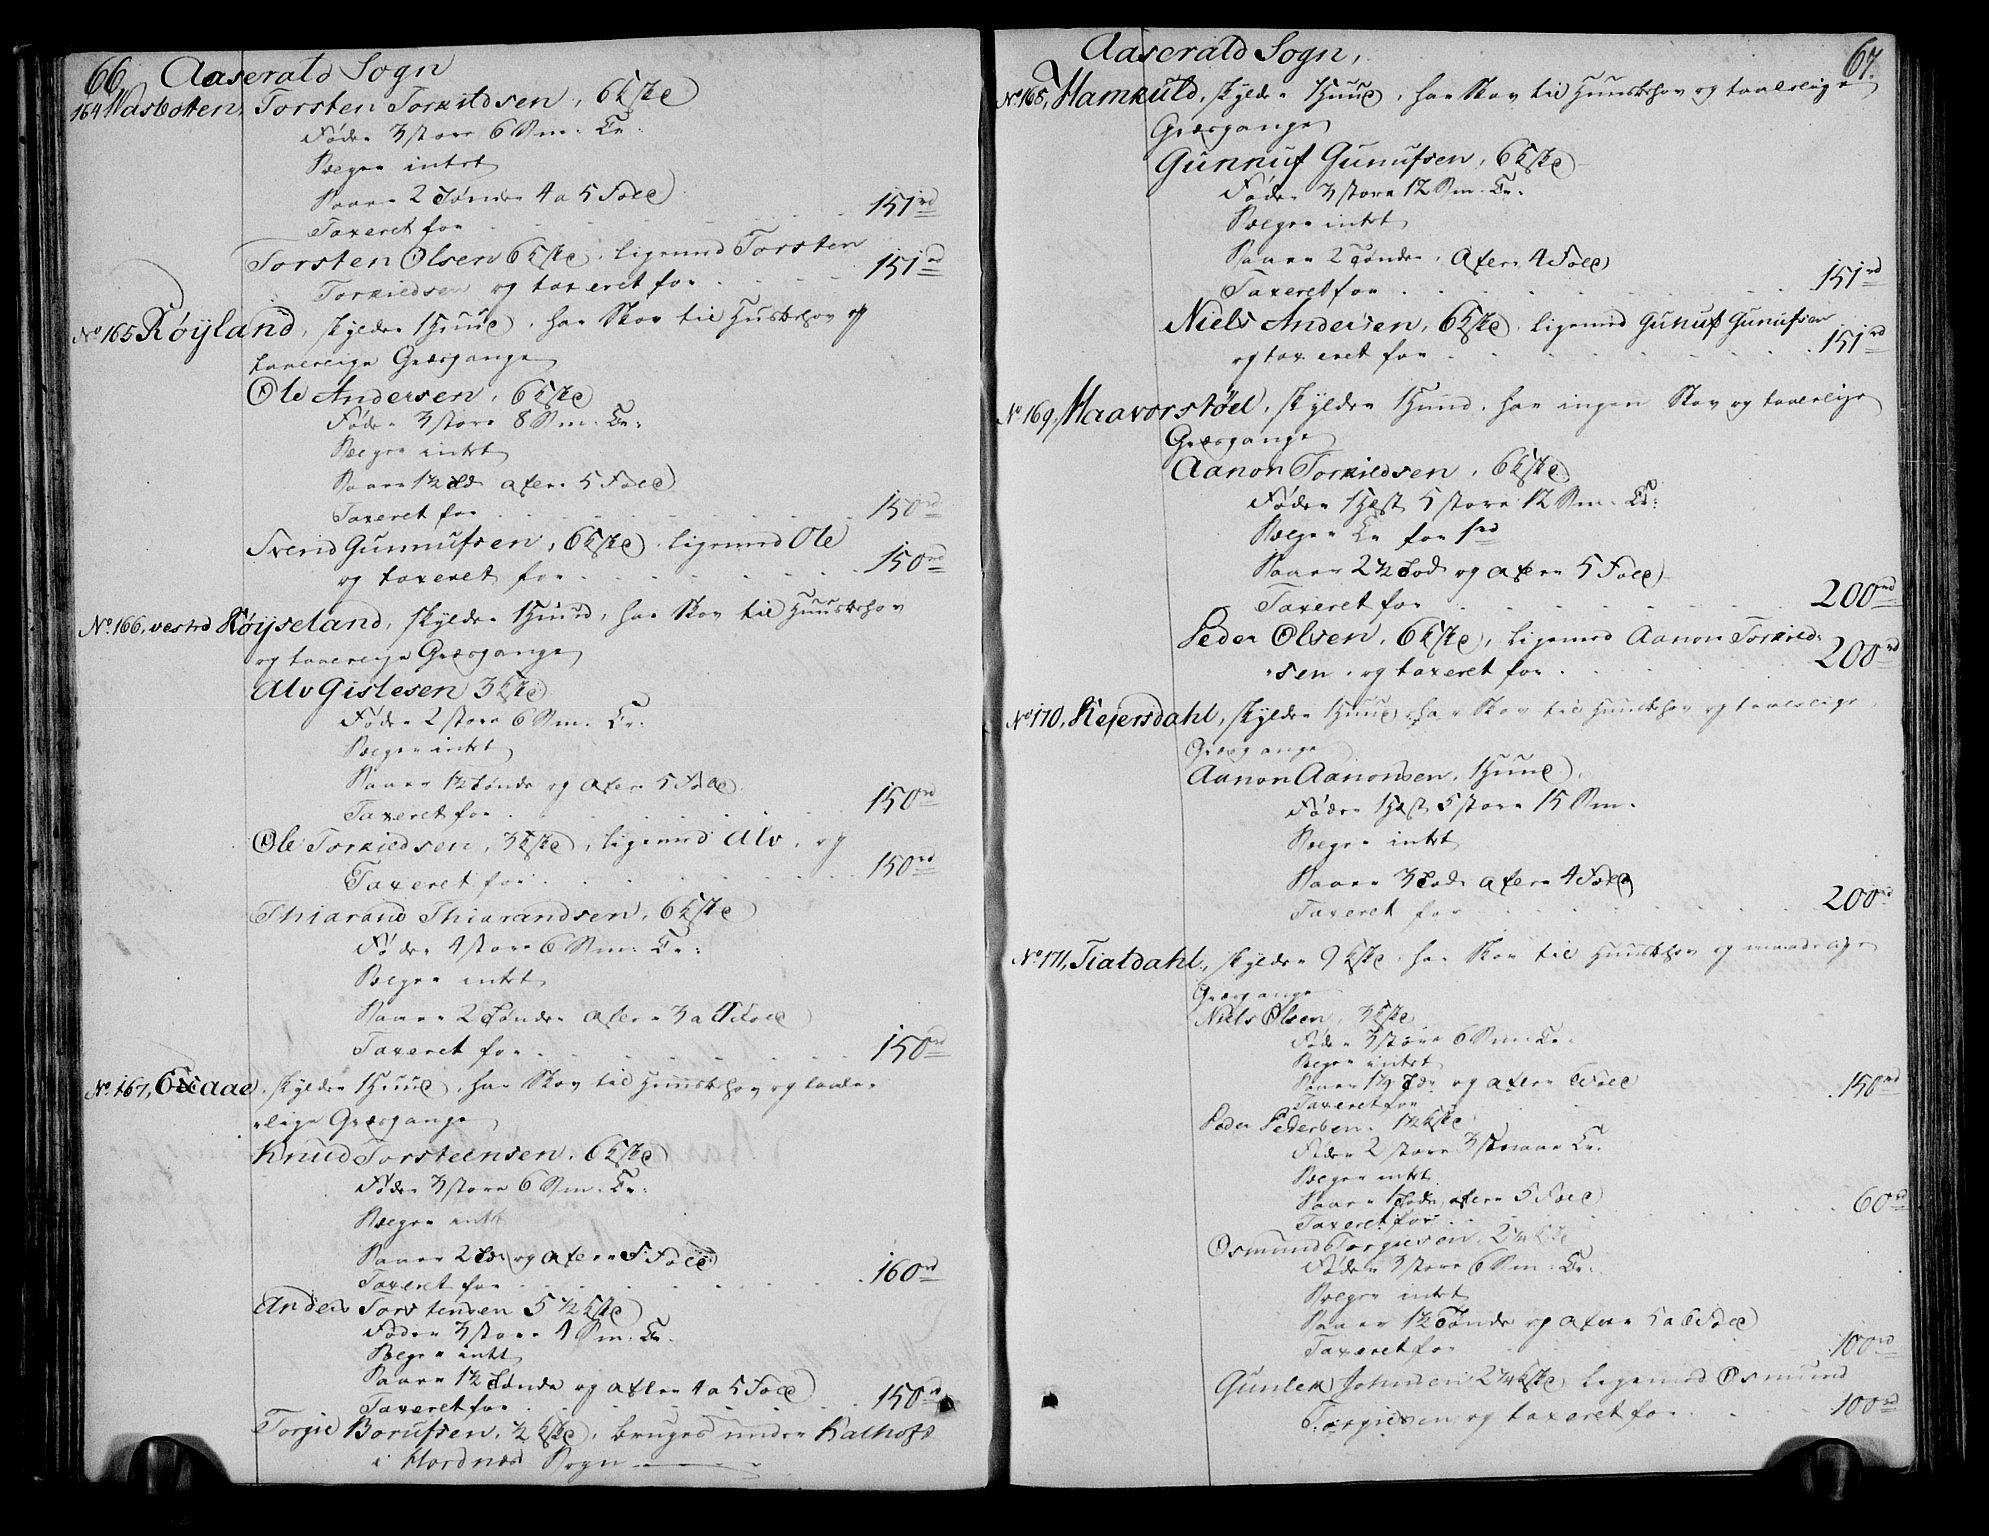 66, Aaserald Sogn
164 Vasbotten, Torsten Torkildsen, 6 Kske
Føder 3 store 6 Sm: Cr:
Belgr intet
Saaer 2 Tønder 4 a 5 Fold
Taxeret for . . . 151 rd
Torsten Olsen 6 Kske. ligemed Torsten
Torkildsen og taxeret for . . . 151 rd
No 165 Røyland, skylder 1 Huud, har Skov til Huusbehov og
taalelige Græsgange
Ole Andersen, 6 Kske
Føder 3 store 8 Sm: Cr:
Belgr intet
Saaer 1½ Td. afler 5 Fold
Taxeret for . . . 150 rd
Svend Gunnufsen, 6 Kske. ligemed Ole
og taxeret for . . . 150 rd
No. 166, vestre Røyseland, skylder 1 Huud, har Skov til Huusbehov
og taalelige Græsgange
Alv Gislesen 3 Kske
Føder 2 store 6 Sm: Cr:
Belgr intet
Saaer 1½ Tønde og afler 5 Fold
Taxeret for . . . 150 rd
Ole Torkildsen, 3 Kske, ligemed Alv, og
Taxeret for . . . 150 rd
Thiarand Thiarandsen, 6 Kske
Føder 4 store 6 Sm: Cr:
Belgr intet
Saaer 2 Tønder afler 3 a 4 Fold
Taxeret for . . . 150 rd
No. 167, skylder 1 Huud, har Skov til Huusbehov og taale-
lige Græsgange
Knud Torsteensen, 6 Kske
Føder 3 store 6 Sm: Cr:
Belgr intet
Saaer 2 Td og afler 5 Fold
Taxeret for . . . 160 rd
Anders Torstensen 5½ Kske
Føder 3 store 4 Sm: Cr.
Belgr intet
Saaer 1½ Tønde og afler 4 a 5 Fold
Taxeret for . . . 150 rd
Torgie Borufsen, ½ Kske, bruges under
i Sogn
Aaserald Sogn, 67.
No 168, Hamkuld, skylder 1 Huud, har Skov til Huusbehov og taalelige
Græsgange
Gunnuf Gunufsen, 6 Kske
Føder 3 store 12 Sm: Cr:
Belgr intet
Saaer 2 Tønder. Afler 4 Fold
Taxeret for . . . 151 rd
Niels Andersen, 6 Kske, ligemed Gunuf Gunufsen
og taxeret for . . . 151 rd
No 169, Haaverstøel, skylder 1 Huud, har ingen Skov og taalelige
Græsgange
Aanon Torkildsen, 6 Kske
Føder 1 Hest 5 store 12 Sm: Cr:
Belgr Cr for 1 rd
Saaer 2½ Tød og afler 5 Fold
Taxeret for . . . 200 rd
Peder Olsen, 6 Kske, ligemed Aanon Torkild-
sen og taxeret for . . . 200 rd
No 170, Kejersdahl, skylder 1 Huud, har Skov til Huusbehov og taalelige
Græsgange
Aanon Aanonsen, 1 Huud,
Føder 1 Hest 5 store 15 Sm.
Belgr intet
Saaer 3 Tød. afler 4 Fold
Taxeret for . . . 200 rd
No 171, Tialdahl, skylder 9 Kske, har Skov til Huusbehov og maadelige
Græsgange
Niels Olsen, 3 Kske
Føder 3 store 6 Sm: Cr.
Belgr intet
Saaer 1½ Td. og afler 6 Fold
Taxeret for . . . 150 rd
Peder Pedersen. 1½ Kske
Føder 2 store 3 smaae Cr.
Belgr intet
Saaer 1 Tønde, afler 5 Fold
Taxeret for . . . 60 rd
Osmund Torgiesen, 2¼ Kske
Føder 3 store 6 Sm: Cr.
Belgr intet
Saaer 1½ Tønde og afler 5 a 6 Fold
Taxeret for . . . 100 rd
Gunlek Johnsen 2¼ Kske ligemed Osmund
Torgiesen og taxeret for . . . 100 rd